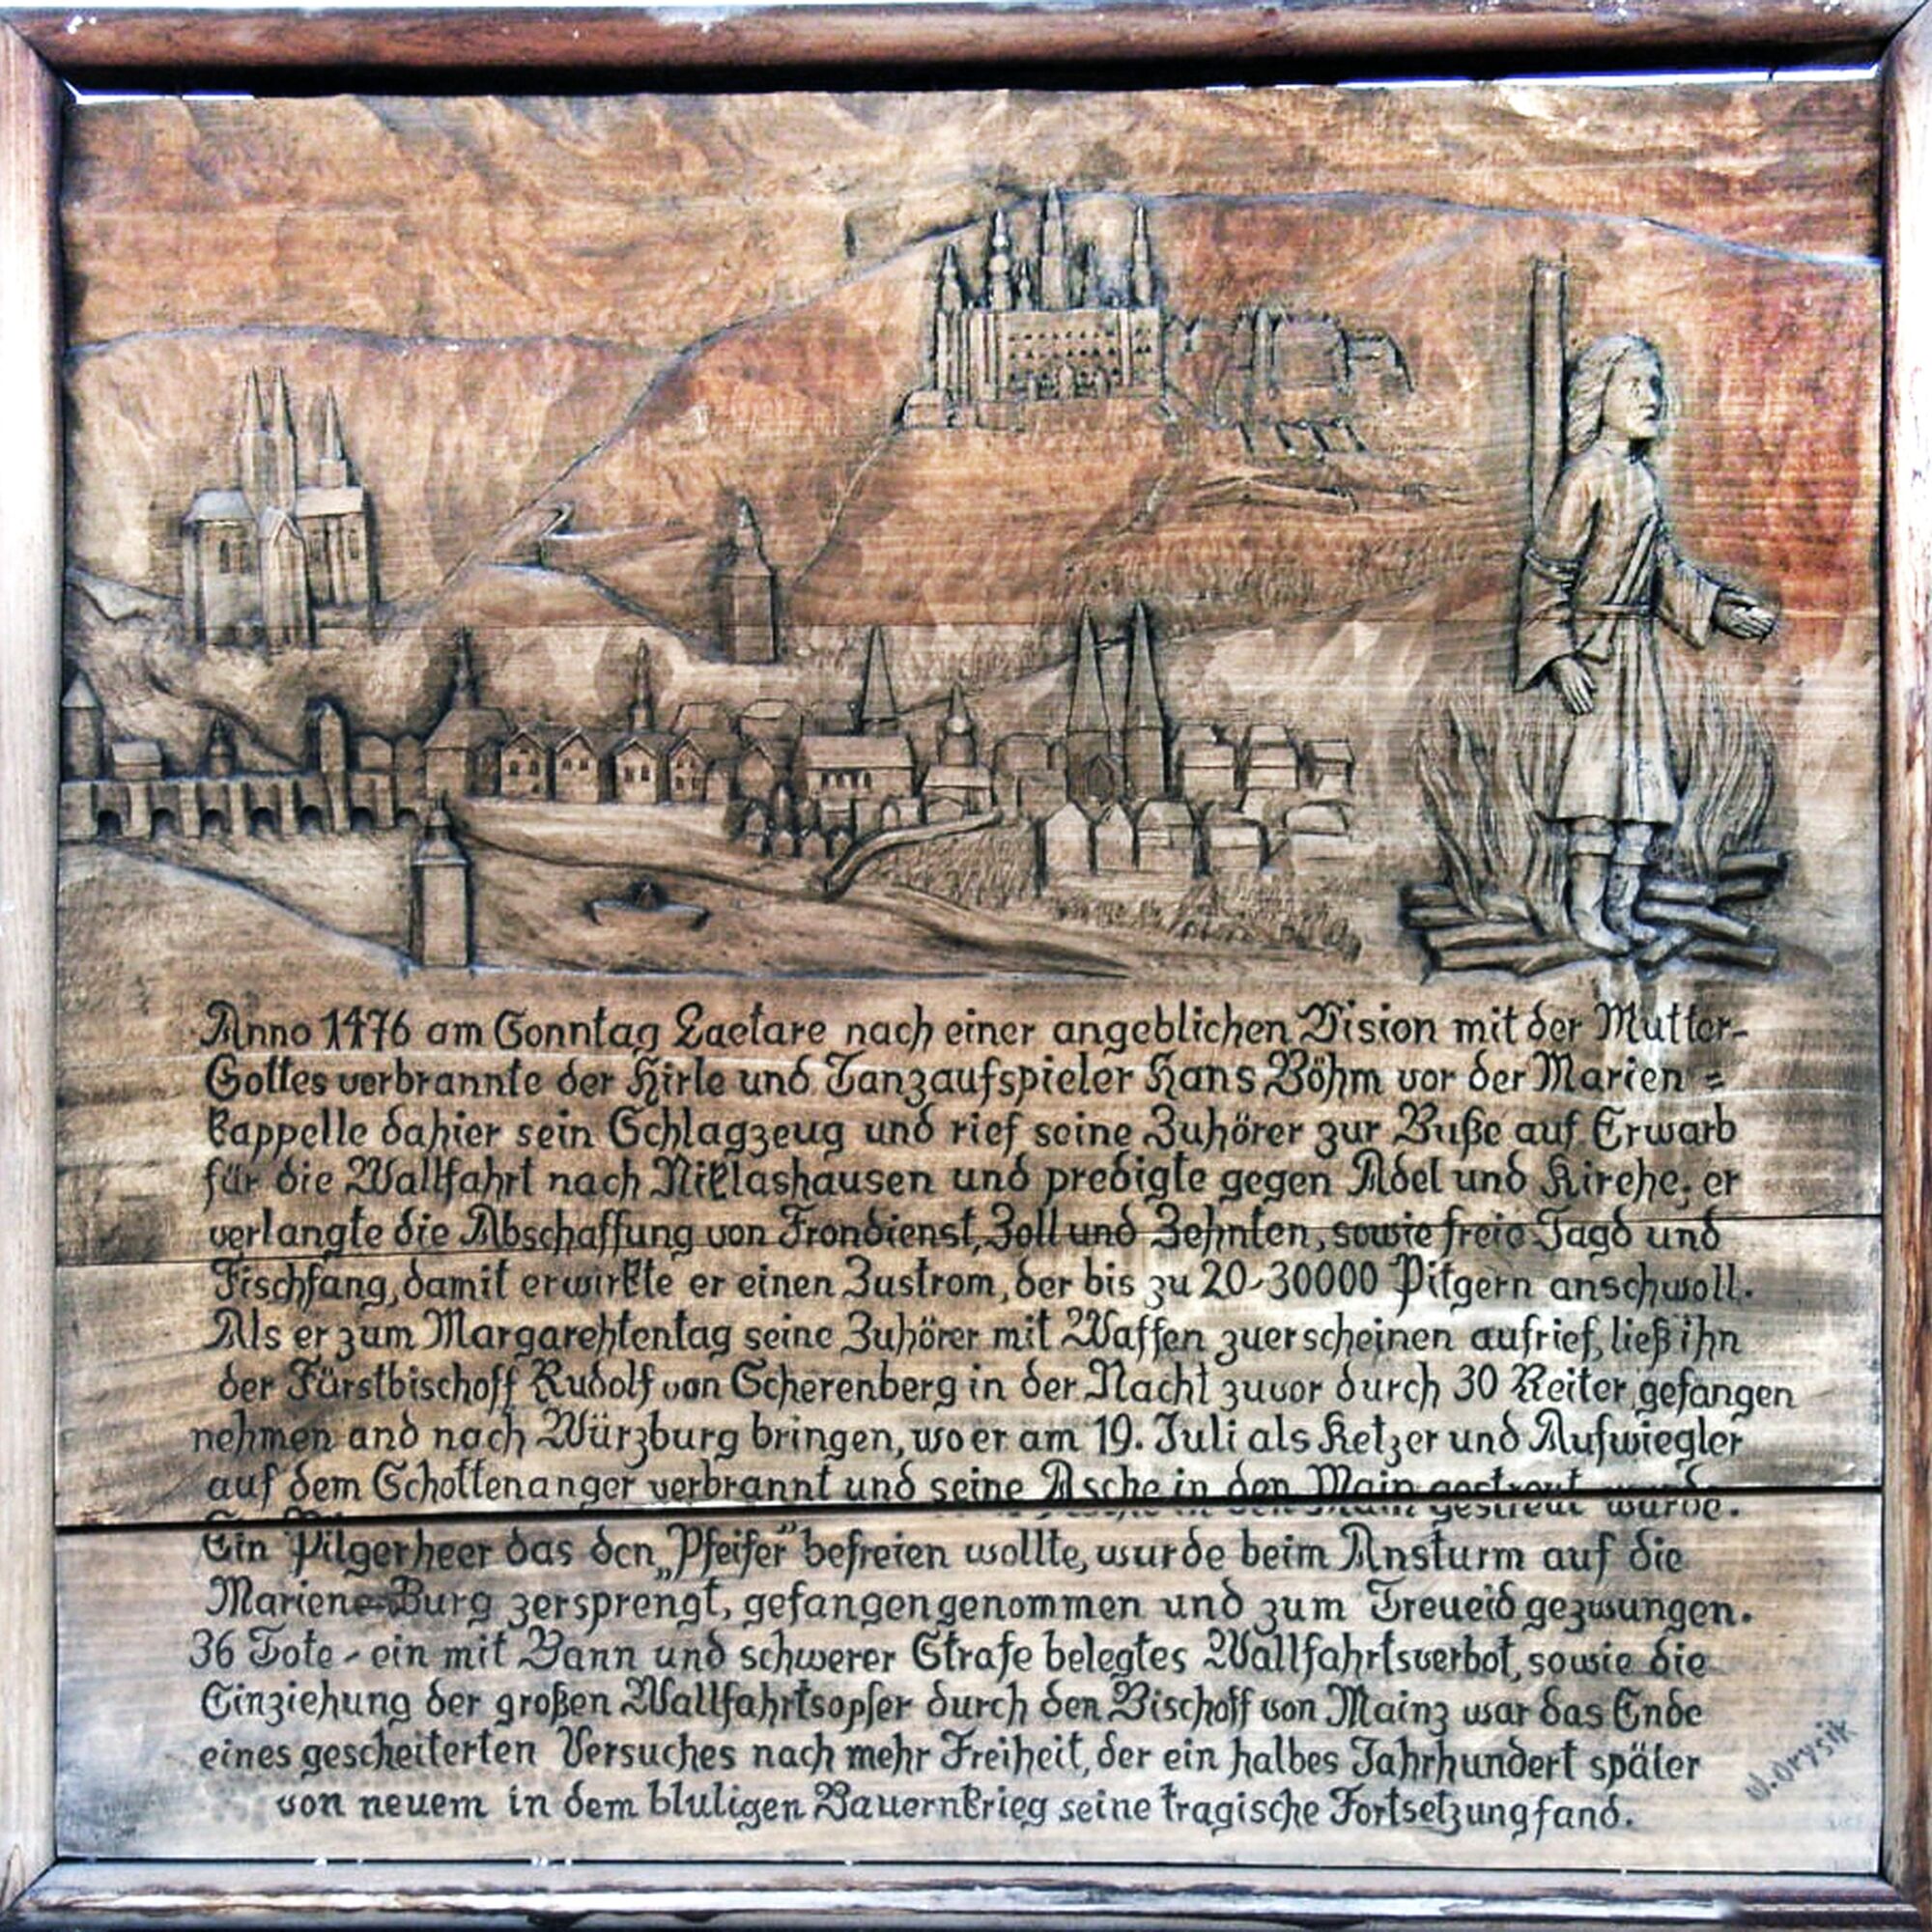 Anno 1476 am Sonntag Laetare nach einer angeblichen Vision mit der Mutter-
Gottes verbrannte der Hirte und Tanzaufspieler Hans Böhm vor der Marien=
kappelle dahier sein Schlagzeug und rief seine Zuhörer zur Buße auf Erwarb
für die Wallfahrt nach Niklashausen und predigte gegen Adel und Kirche; er
verlangte die Abschaffung von Frondienst, Zoll und Zehnten, sowie freie Jagd und
Fischfang, damit erwirkte er einen Zustrom, der bis zu 20-30000 Pilgern anschwoll.
Als er zum Margarehtentag seine Zuhörer mit Waffen zuerscheinen aufrief, ließ ihn
der Fürstbischoff Rudolf von Scherenberg in der Nacht zuvor durch 30 Reiter gefangen
nehmen and nach Würzburg bringen, wo er am 19. Juli als Ketzer und Aufwiegler
auf dem Schottenanger verbrannt und seine Asche in den Main gestreut wurde.
Ein Pilgerheer das den „Pfeifer" befreien wollte, wurde beim Ansturm auf die
Marien-Burg zersprengt, gefangengenommen und zum Treueid gezwungen.
36 Tote - ein mit Bann und schwerer Strafe belegtes Wallfahrtsverbot, sowie die
Einziehung der großen Wallfahrtsopfer durch den Bischoff von Mainz war das Ende
eines gescheiterten Versuches nach mehr Freiheit, der ein halbes Jahrhundert später
von neuem in dem blutigen Bauernkrieg seine tragische Fortsetzung fand.